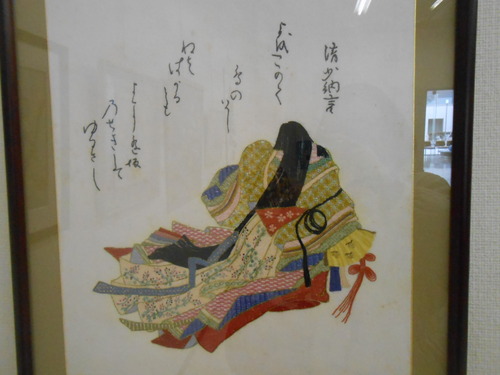 清少納言
よをこめて
鳥のそら
ねははかるとも
よにあふ坂
のせきは
ゆるさし